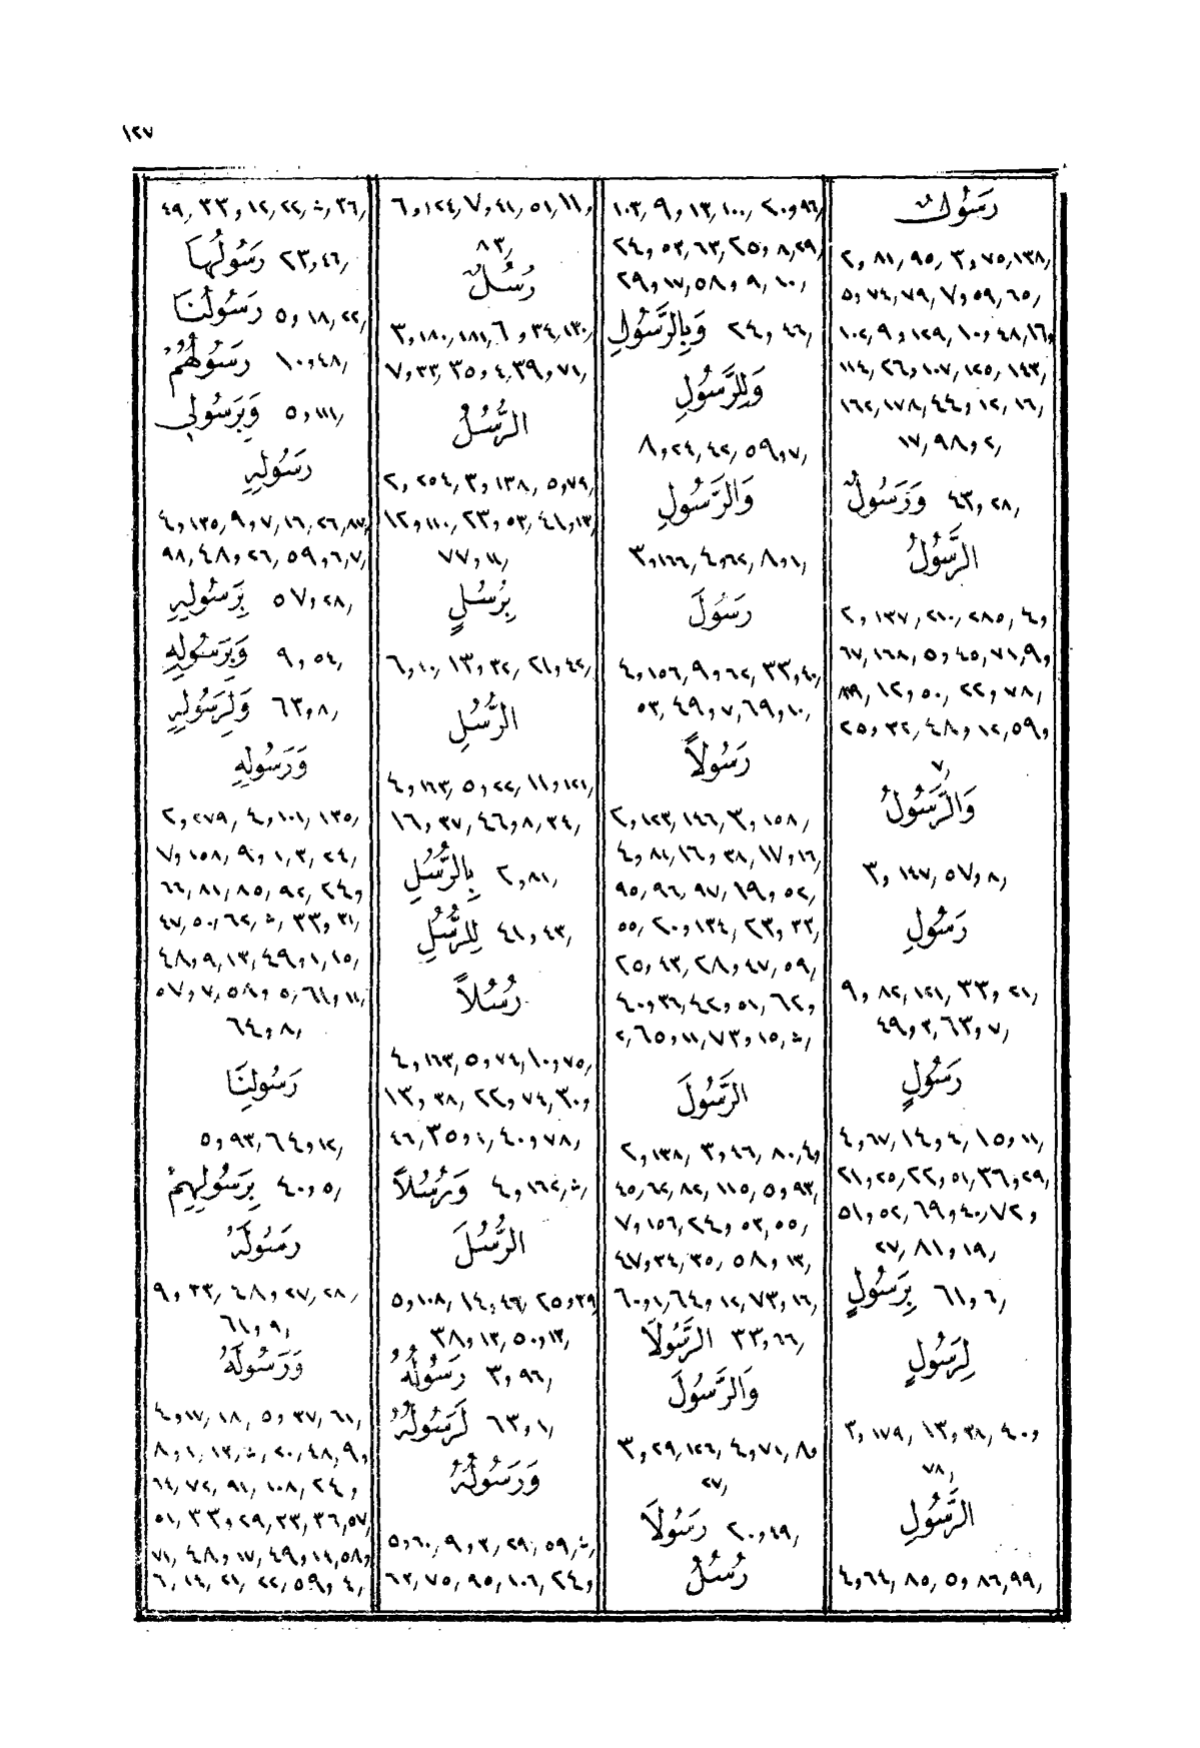 ١٢٧
رَسُولٌ
٢و ٨١, ٩٥, ٣و ٧٥, ١٣٨,
٥و ٧٤, ٧٩, ٧و ٥٩, ٦٥,
١١٤, ٢٦و ١٠٧, ١٢٥, ١٤٣,
١٦٢, ١٧٨, ٤٤و ١٢, ١٦,
١٧, ٩٨و ٢,
وَرَسُولٌ ٤٣و ٢٨,
الرَّسُولُ
٢و ١٣٧, ٢١٠, ٢٨٥, ٤و
٢٥و ٣٢, ٤٨و ١٢, ٥٩و
٧,
وَالرَّسُولُ
٣و ١٤٧, ٥٧و ٨,
رَسُولِ
٩و ٨٢, ١٢١, ٣٣و ٢١,
٤٩و ٣, ٦٣و ٧,
رَسُولٍ
٤و ٦٧, ١٤و ٤, ١٥و ١١,
٢١و ٢٥, ٢٢و ٥١, ٣٦و ٢٩,
٥١و ٥٢, ٦٩و ٤٠, ٧٢و
٢٧, ٨١و ١٩,
بِرَسُولٍ ٦١و ٦,
لِرَسُولٍ
٣و ١٧٩, ١٣و ٣٨, ٤٠و
٧٨,
الرَّسُولِ
٤و ٦٤, ٨٥, ٥و ٨٦, ٩٩,
١٠٣, ٩و ١٣, ١٠٠, ٢٠و ٩٦,
٢٤و ٥٣, ٦٣, ٢٥و ٨, ٢٩,
٢٩و ١٧, ٥٨و ٩, ١٠,
وَبِالرَّسُولِ ٢٤و ٤٦,
وَلِلرَّسُولِ
٨و ٢٤, ٤٢, ٥٩و ٧,
وَالرَّسُولِ
٣و ١٦٦, ٤و ٦٢, ٨و ١,
رَسُولَ
٤و ١٥٦, ٩و ٦٢, ٣٣و ٤٠,
٥٣, ٤٩و ٧, ٦٩و ١٠,
رَسُولاً
٢و ١٢٣, ١٤٦, ٣و ١٥٨,
٤و ٨١, ١٦و ٣٨, ١٧و ١٦,
٩٥, ٩٦, ٩٧, ١٩و ٥٢,
٥٥, ٢٠و ١٣٤, ٢٣و ٣٣,
٢٥و ٤٣, ٢٨و ٤٧, ٥٩,
٤٠و ٣٦, ٤٢و ٥١, ٦٢و
٢, ٦٥و ١١, ٧٣و ١٥, ث,
الرَّسُولَ
٢و ١٣٨, ٣و ٤٦, ٨٠, ٤و
٤٥, ٦٢, ٨٢, ١١٥, ٥و ٩٣,
٧و ١٥٦, ٢٤و ٥٣, ٥٥,
٤٧و ٣٤, ٣٥, ٥٨و ١٣,
٦٠و ١, ٦٤و ١٢, ٧٣و ١٦,
الرَّسُولَا ٣٣و ٦٦,
وَالرَّسُولَ
٣و ٢٩, ١٢٦, ٤و ٧١, ٨و
٢٧,
رَسُولَا ٢٠و ٤٩,
رُسُلُ
٦و ١٢٤, ٧و ٤١, ٥١, ١١و
٨٣,
رُسُلٌ
٣و ١٨٠, ١٨١, ٦و ٣٤, ١٣٠,
٧و ٣٣, ٣٥و ٤, ٣٩و ٧١,
الرُّسُلُ
٢و ٢٥٤, ٣و ١٣٨, ٥و ٧٩,
١٢و ١١٠, ٢٣و ٥٣, ٤١و ١٣,
٧٧و ١١,
بِرُسُلٍ
٦و ١٠, ١٣و ٣٢, ٢١و ٤٢,
الرُّسُلِ
٤و ١٦٣, ٥و ٢٢, ١١و ١٢١,
١٦و ٣٧, ٤٦و ٨, ٣٤,
بِالرُّسُلِ ٢و ٨١,
لِلرُّسُلِ ٤١و ٤٣,
رُسُلاً
٤و ١٦٣, ٥و ٧٤, ١٠و ٧٥,
١٣و ٣٨, ٢٢و ٧٤, ٣٠و
٤٦, ٣٥و ١, ٤٠و ٧٨,
وَرُسُلاً ٤و ١٦٢, ث,
الرُّسُلَ
٥و ١٠٨, ١٤و ٤٦, ٢٥و ٣٩
٣٨و ١٣, ٥٠و ١٣,
رَسُولُهُ ٣و ٩٦,
لَرَسُولُهُ ٦٣و ١,
وَرَسُولُهُ
٥و ٦٠, ٩و ٣, ٢٩, ٥٩, ث,
٦٢, ٧٥, ٩٥, ١٠٦, ٢٤و
٤٩, ٣٣و ١٢, ٢٢, ث, ٣٦,
رَسُولُهَا ٢٣و ٤٦,
رَسُولُنَا ٥و ١٨, ٢٢,
رَسُولُهُمْ ١٠و ٤٨,
وَبِرَسُولِي ٥و ١١١,
رَسُولِهِ
٤و ١٣٥, ٩و ٧, ١٦, ٢٦, ٨٧,
٩٨, ٤٨و ٢٦, ٥٩و ٦, ٧,
بِرَسُولِهِ ٥٧و ٢٨,
وَبِرَسُولِهِ ٩و ٥٤,
وَلِرَسُولِهِ ٦٣و ٨,
وَرَسُولِهِ
٢و ٢٧٩, ٤و ١٠١, ١٣٥,
٧و ١٥٨, ٩و ١, ٣, ٢٤,
٦٦, ٨١, ٨٥, ٩٢, ٢٤و
٤٧, ٥٠, ٦٢, ث, ٣٣و ٣١,
٤٨و ٩, ١٣, ٤٩و ١, ١٥,
٥٧و ٧, ٥٨و ٥, ٦١و ١١,
٦٤و ٨,
رَسُولِنَا
٥و ٩٣, ٦٤و ١٢,
بِرَسُولِهِمْ ٤٠و ٥,
رَسُولَهُ
٩و ٣٣, ٤٨و ٢٧, ٢٨,
٦١و ٩,
وَرَسُولَهُ
٤و ١٧, ١٨, ٥و ٣٧, ٦١,
٨و ١, ١٣, ث, ٢٠, ٤٨, ٩و
٦٤, ٧٢, ٩١, ١٠٨, ٢٤و
٥١, ٣٣و ٢٩, ٣٣, ٣٦, ٥٧,
٧١, ٤٨و ١٧, ٤٩و ١٤, ٥٨و
٦, ١٤, ٢١, ٢٢, ٥٩و ٤,